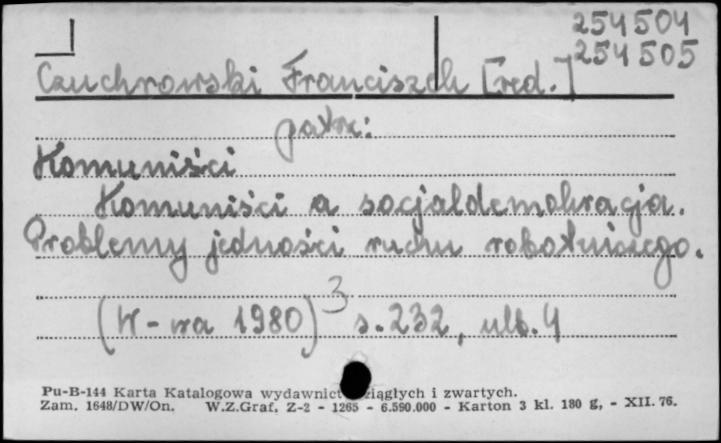 254504
254505
Czuchrowski Franciszek [red.]
patrz:
Komuniści
Komuniści a socjaldemokracja.
Problemy jedności ruchu robotniczego.
(W-wa 1980) 3 s. 232, ulb. 4
Pu-B-144 Karta Katalogowa wydawnict ciągłych i zwartych.
Zam. 1648/DW/On. W.Z.Graf. Z-2 - 1265 - 6.590.000 - Karton 3 kl. 180 g, - XII. 76.